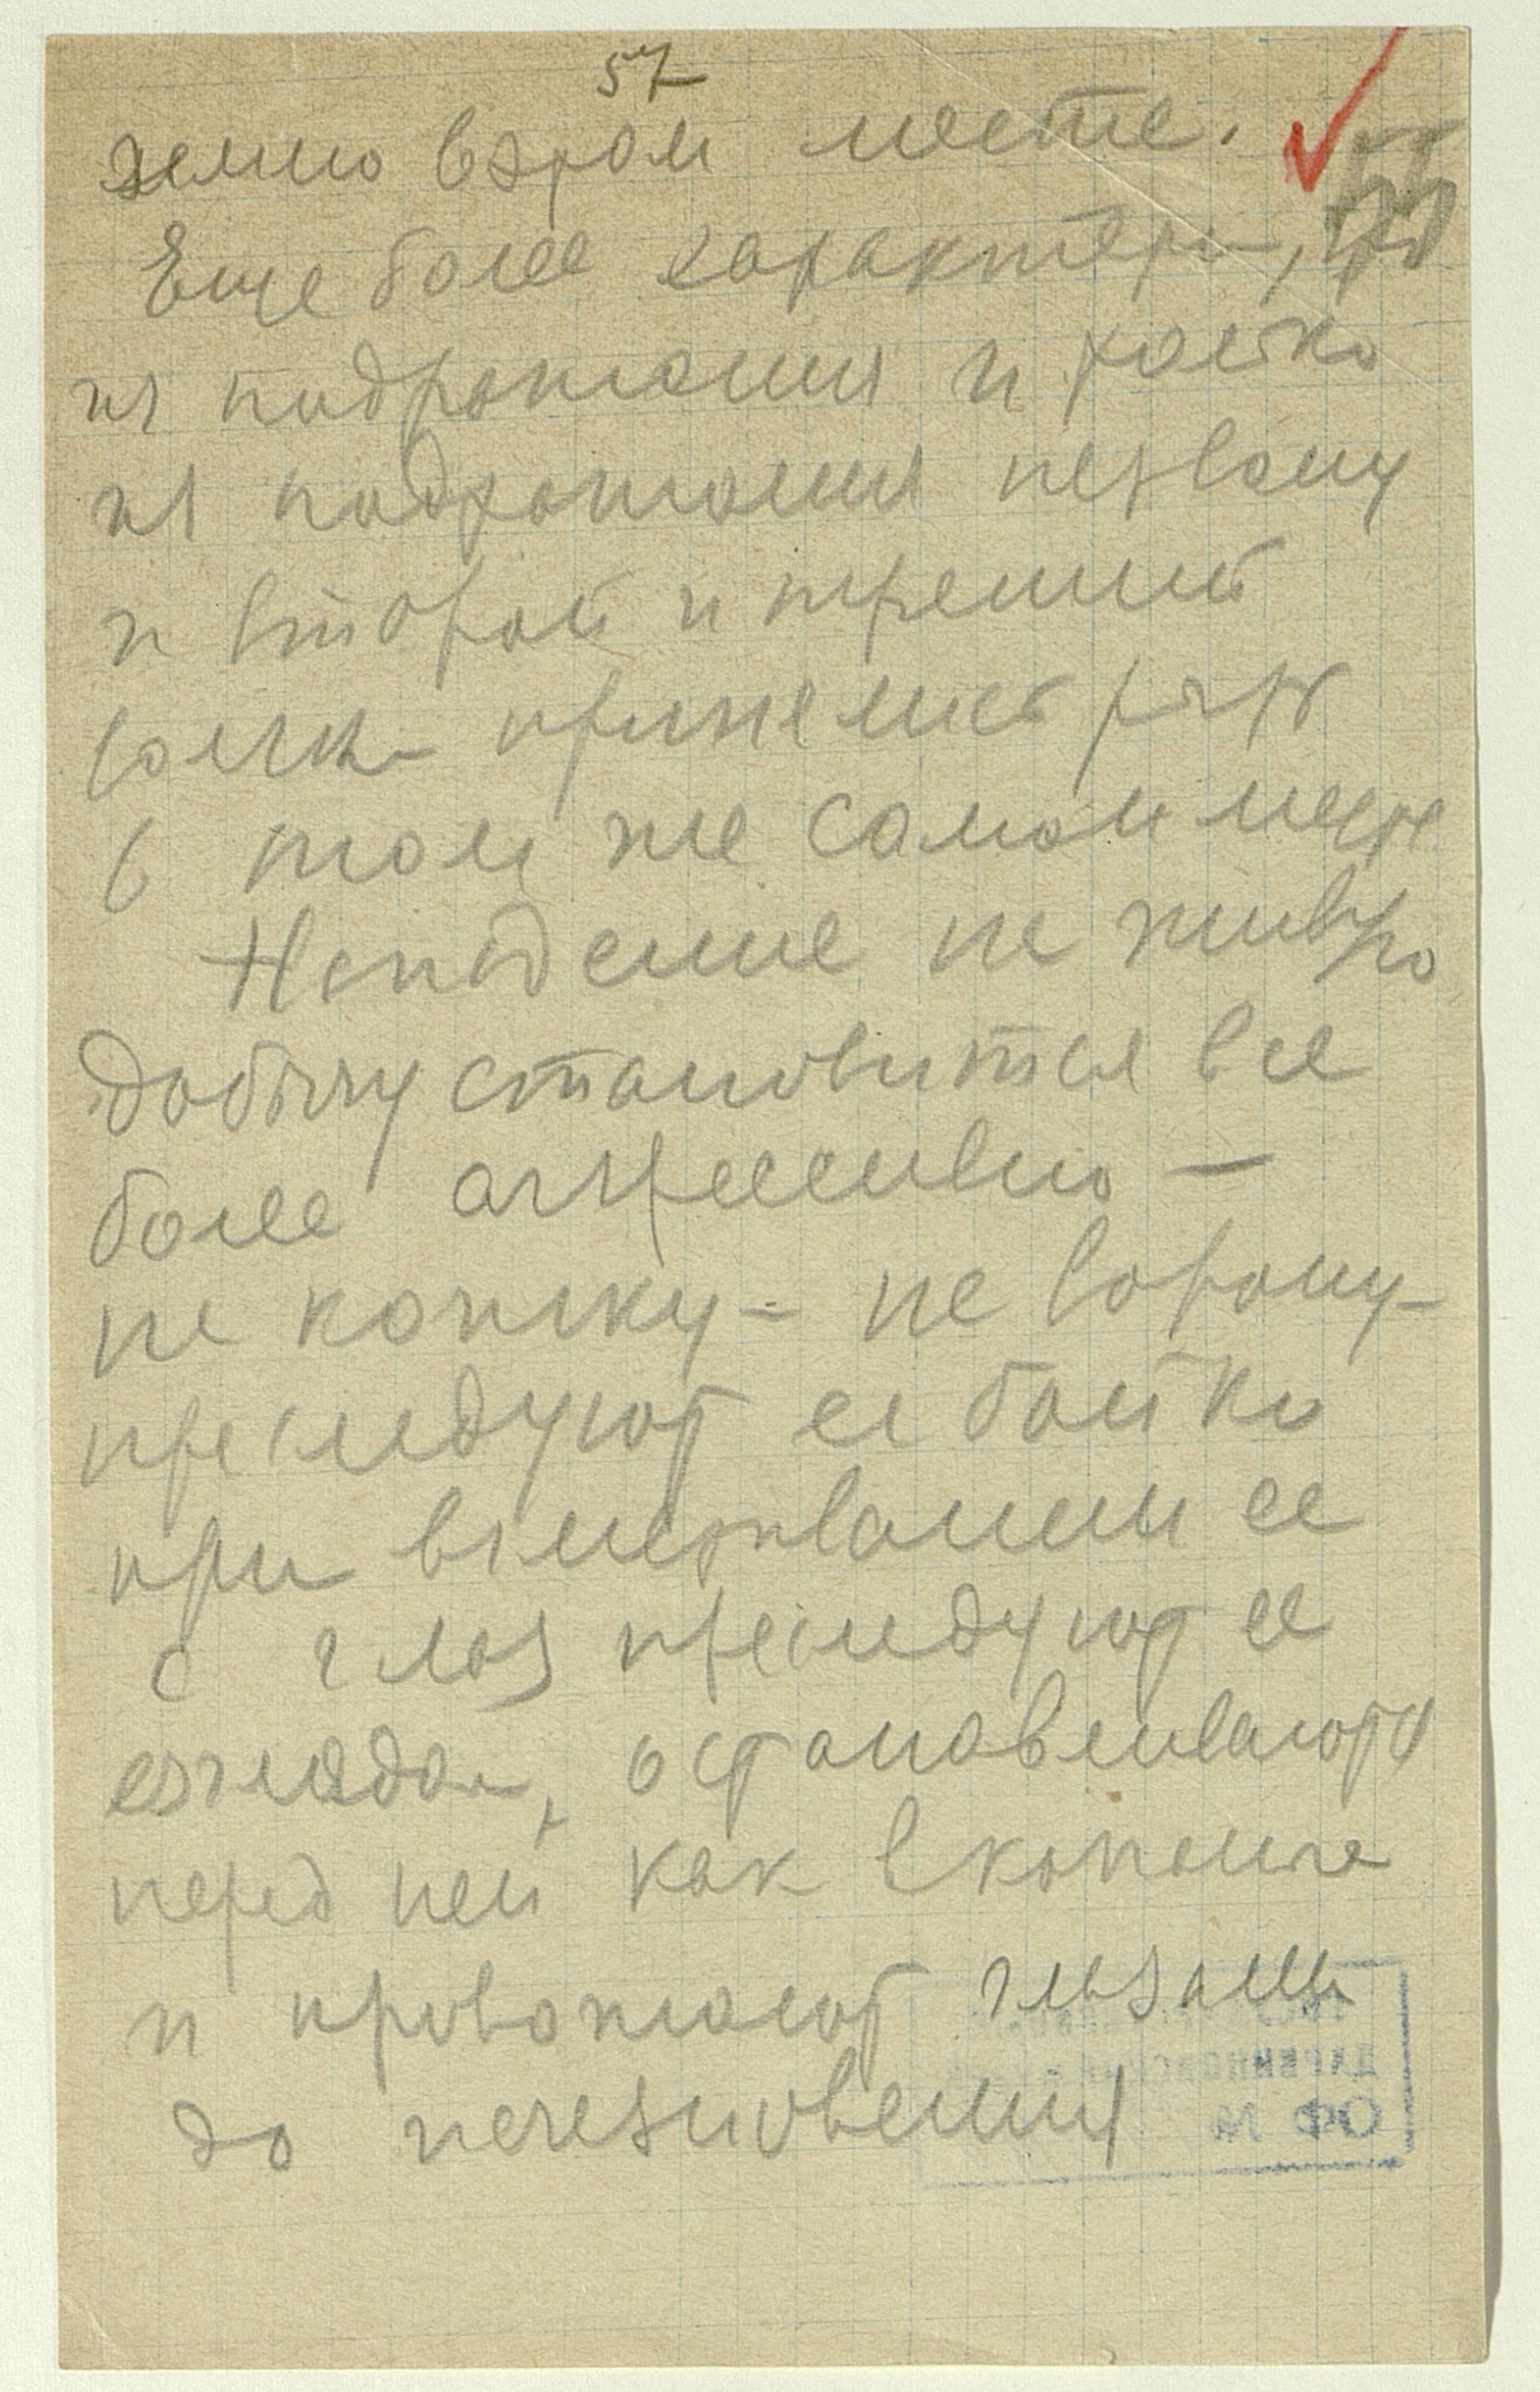 57
землю в этом месте.
Еще более характерн, что
из подражания и только
из подражания первому
и второй и третий
волк принемает рыть
в том же самом месте
Нападение на живую
добычу становится все
более агрессивно —
на кошку - на ворону -
преследуют ее бойко
при
с глаз преследуют ее
взглядом, останавливаются
перед ней как вкопаные
и провожают глазами
до исчезновения